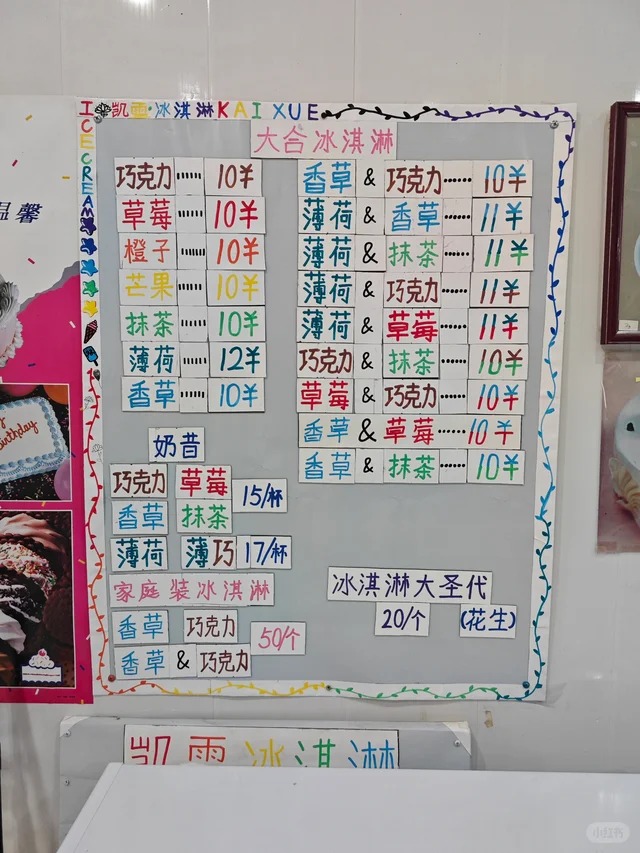 ICECREAM
凯雪·冰淇淋KAI XUE
大合冰淇淋
巧克力······10¥
草莓······10¥
橙子······10¥
芒果······10¥
抹茶······10¥
薄荷······12¥
香草······10¥
香草 & 巧克力······10¥
薄荷 & 香草······11¥
薄荷 & 抹茶······11¥
薄荷 & 巧克力······11¥
薄荷 & 草莓······11¥
巧克力 & 抹茶······10¥
草莓 & 巧克力······10¥
香草 & 草莓······10¥
香草 & 抹茶······10¥
奶昔
巧克力 草莓
香草 抹茶
15/杯
薄荷 薄巧 17/杯
家庭装冰淇淋
香草 巧克力
香草 & 巧克力
50/个
冰淇淋大圣代
20/个 (花生)
凯雪冰淇淋
温馨
birthday
小红书